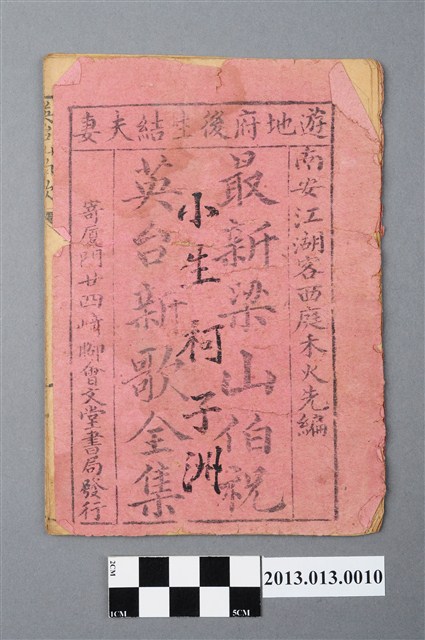 游地府後生結夫妻
南安江湖客西庭木火先編
最新梁山伯祝
英台新歌全集
小生柯子洲
寄廈門廿四崎脚會文堂書局發行
2CM
1CM
5CM
2013.013.0010